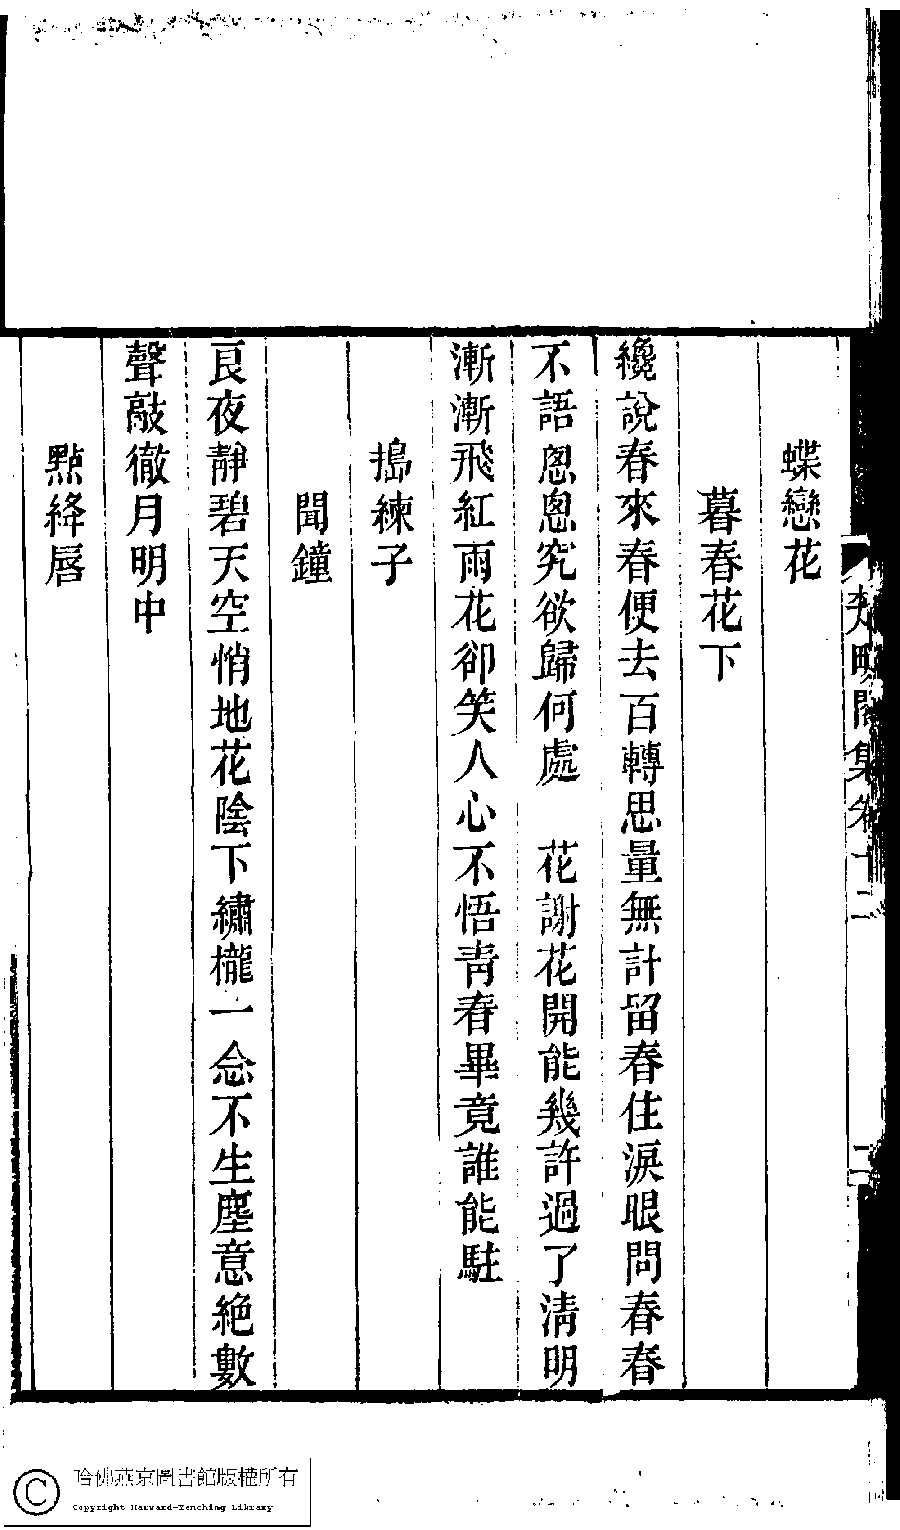 蝶戀花
暮春花下
纔說春來春便去百轉思量無計留春住淚眼問春春
不語悤悤究欲歸何處　花謝花開能幾許過了淸明
漸漸飛紅雨花卻笑人心不悟靑春畢竟誰能駐
搗練子
聞鐘
良夜靜碧天空悄地花陰下繡櫳一念不生塵意絕數
聲敲徹月明中
點絳唇
集卷十二
二
哈佛燕京圖書館版權所有
Copyright Harvard-Yenching Library